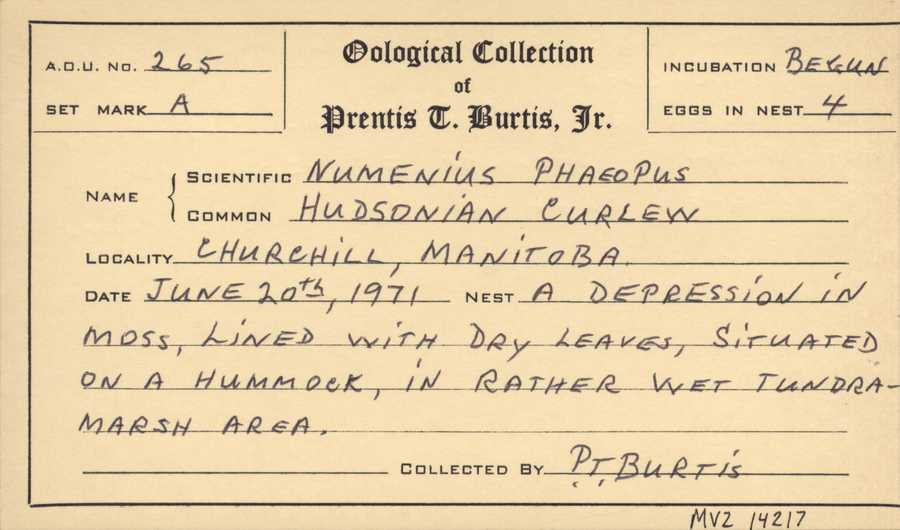 A.O.U. No. 265
SET MARK A
Oological Collection
of
Prentis T. Burtis, Jr.
INCUBATION BEGUN
EGGS IN NEST 4
NAME
SCIENTIFIC NUMENIUS PHAEOPUS
COMMON HUDSONIAN CURLEW
LOCALITY CHURCHILL, MANITOBA.
DATE JUNE 20th, 1971 NEST A DEPRESSION IN
MOSS, LINED WITH DRY LEAVES, SITUATED
ON A HUMMOCK, IN RATHER WET TUNDRA-
MARSH AREA.
COLLECTED BY P.T. BURTIS
MVZ 14217